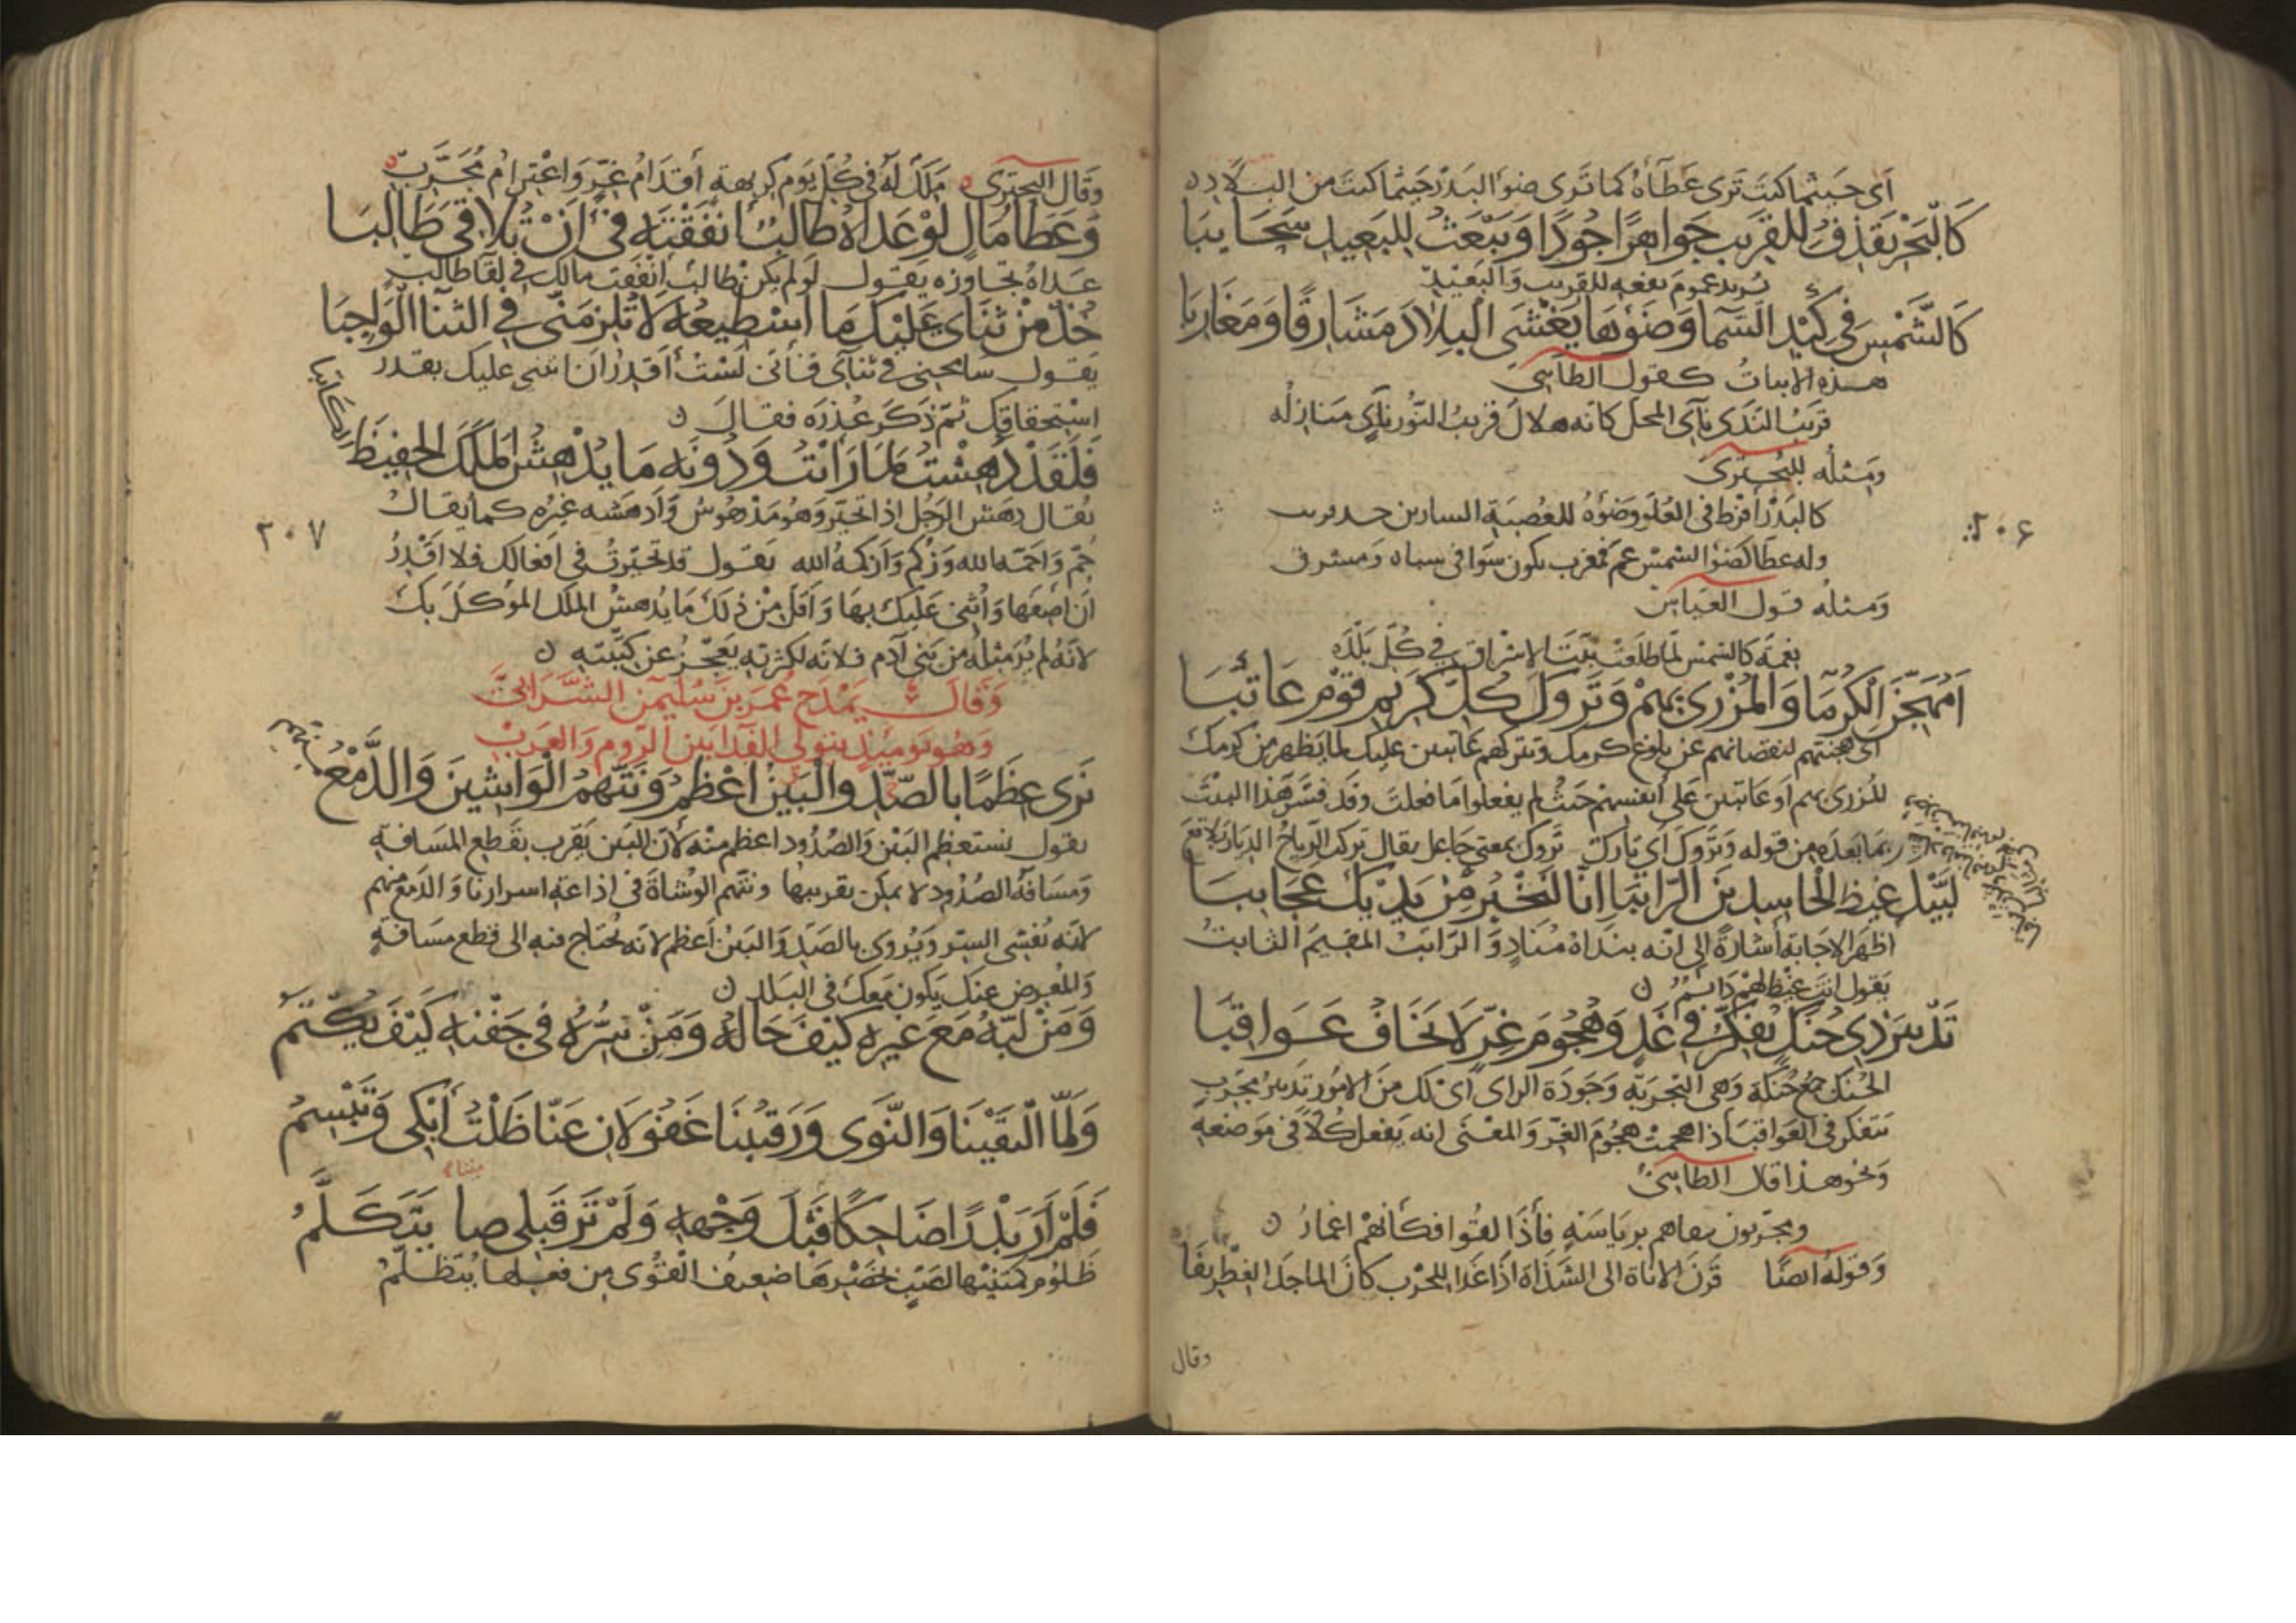 أي حيثما كنت ترى عطآءه كما ترى ضوء البدر حيثما كنت من البلاد
كالبحر يقذف للقريب جواهرا جودا ويبعث للبعيد سحايبا
يريد عموم نفعه للقريب والبعيد
كالشمس في كبد السما وضوءها يغشى البلاد مشارقا ومغاربا
هذه الابيات كقول الطايي
قريب الندى نآى المحل كانه هلال قريب النور نآى منازله
ومثله للبحتري
كالبدر أفرط في العلو وضوءه للعصبة السارين جد قريب
وله عطا كضوء الشمس عم فمغرب يكون سوا في سناه ومشرق
ومثله قول العباس
نعمة كالشمس لما طلعت بثت الاشراق في كل بلد
٢٠٦
أمهجن الكرما والمزري بهم وتروك كل كريم قوم عاتبا
أي هجنتهم لنقصانهم عن بلوغ كرمك وتتركهم عاتبين عليك لما يظهر من كرمك
المزري بهم أو عاتبين على أنفسهم حيث لم يفعلوا ما فعلت وقد فسر هذا البيت
بما بعده من قوله وتروك أي تارك تروك بمعنى جاعل يقال تركت الرياح الديار بلاقع
لبيك غيظ الحاسدين الراتبا انا لنخبر من يديك عجايبا
اظهر الاجابة اشارة الى انه بنداه مناد والراتب المقيم الثابت
يقول انت غيظ لهم دائم
تدبير ذي حنك يفكر في غد وهجوم غر لا يخاف عواقبا
الحنك جمع حنكة وهي التجربة وجودة الراى اى لك من الامور تدبير مجرب
يتفكر في العواقب اذا هجمت هجوم الغر والمعنى انه يفعل كلا في موضعه
ونحو هذا قال الطايي
ومجربون سقاهم من باسه فأذا لقوا فكأنهم اغمار
وقوله ايضا قرن الاناة الى الشذاة اذا غدا للحرب كان الماجد الغطريفا
وقال
وقال البحتري ملك له في كل يوم كريهة أقدام غر واعتزام مجرب
وعطا مال لو عداه طالب انفقته في ان تلاقي طالبا
عداه تجاوزه يقول لو لم يكن طالب انفقت مالك في لقا طالب
خذ من ثناي عليك ما اسطيعه لا تلزمني في الثنا الواجبا
يقول سامحني في ثنآي فأني لست أقدر ان اثني عليك بقدر
استحقاقك ثم ذكر عذره فقال
فلقد دهشت لما رأيت ودونه ما يدهش الملك الحفيظ الكاتبا
يقال دهش الرجل اذا تحير وهو مدهوش وأدهشه غيره كما يقال
٢٠٧
حم واحمه الله وزكم وازكمه الله يقول قد تحيرت في افعالك فلا اقدر
أن اصفها وأثني عليك بها وأقل من ذلك ما يدهش الملك الموكل بك
لانه لم ير مثله من بني آدم فلانه لكثرته يعجز عن كتبته
وقال يمدح عمر بن سليمن الشرابي
وهو يوميذ يتولى الفدا بين الروم والعرب
نرى عظما بالصد والبين اعظم ونتهم الواشين والدمع منهم
يقول نستعظم البين والصدود اعظم منه لان البين يقرب بقطع المسافة
ومسافة الصدود لا يمكن تقريبها ونتهم الوشاة في اذاعة اسرارنا والدمع منهم
لانه يفشي السر ويروى بالصد والبين أعظم لانه يحتاج فيه الى قطع مسافة
والمعرض عنك يكون معك في البلد
ومن لبه مع غيره كيف حاله ومن سره في جفنه كيف يكتم
ولما التقينا والنوى ورقيبنا غفولان عنا ظلت أبكي وتبسم
فلم أر بدرا ضاحكا قبل وجهها ولم تر قبلي ميتا يتكلم
ظلوم كمتنيها لصب كخصرها ضعيف القوى من فعلها يتظلم